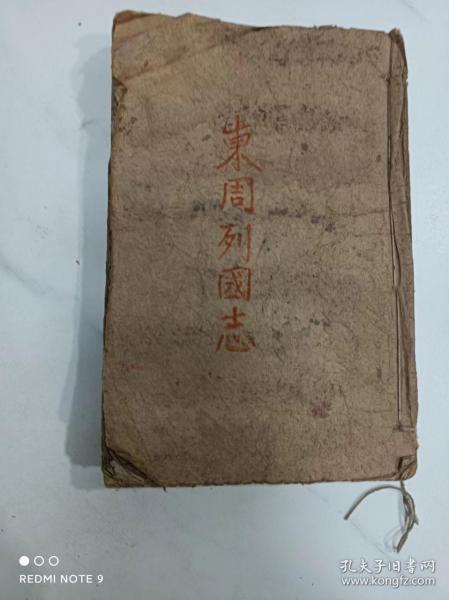 東周列國志
REDMI NOTE 9
孔夫子旧书网
www.kongfz.com